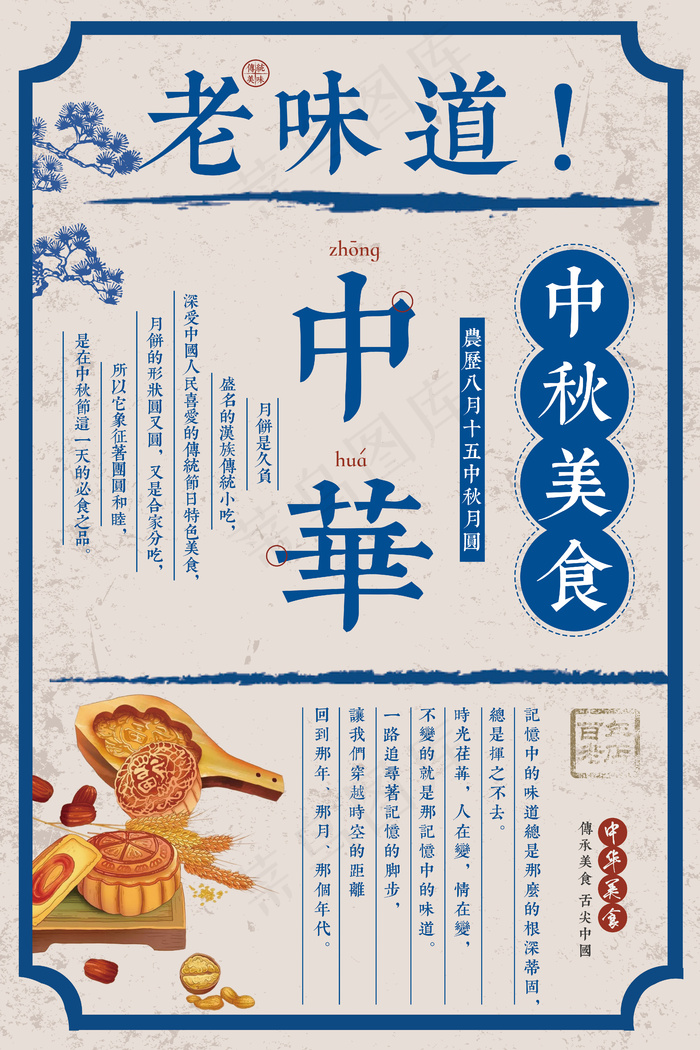 老味道！
傳統美味
中秋美食
農歷八月十五中秋月圓
zhōng
中
huá
華
月餅是久負
盛名的漢族傳統小吃，
深受中國人民喜愛的傳統節日特色美食，
月餅的形狀圓又圓，又是合家分吃，
所以它象征著團圓和睦，
是在中秋節這一天的必食之品。
百年老店
中华美食
傳承美食 舌尖中國
記憶中的味道總是那麼的根深蒂固，
總是揮之不去。
時光荏苒，人在變，情在變，
不變的就是那記憶中的味道。
一路追尋著記憶的脚步，
讓我們穿越時空的距離
回到那年、那月、那個年代。